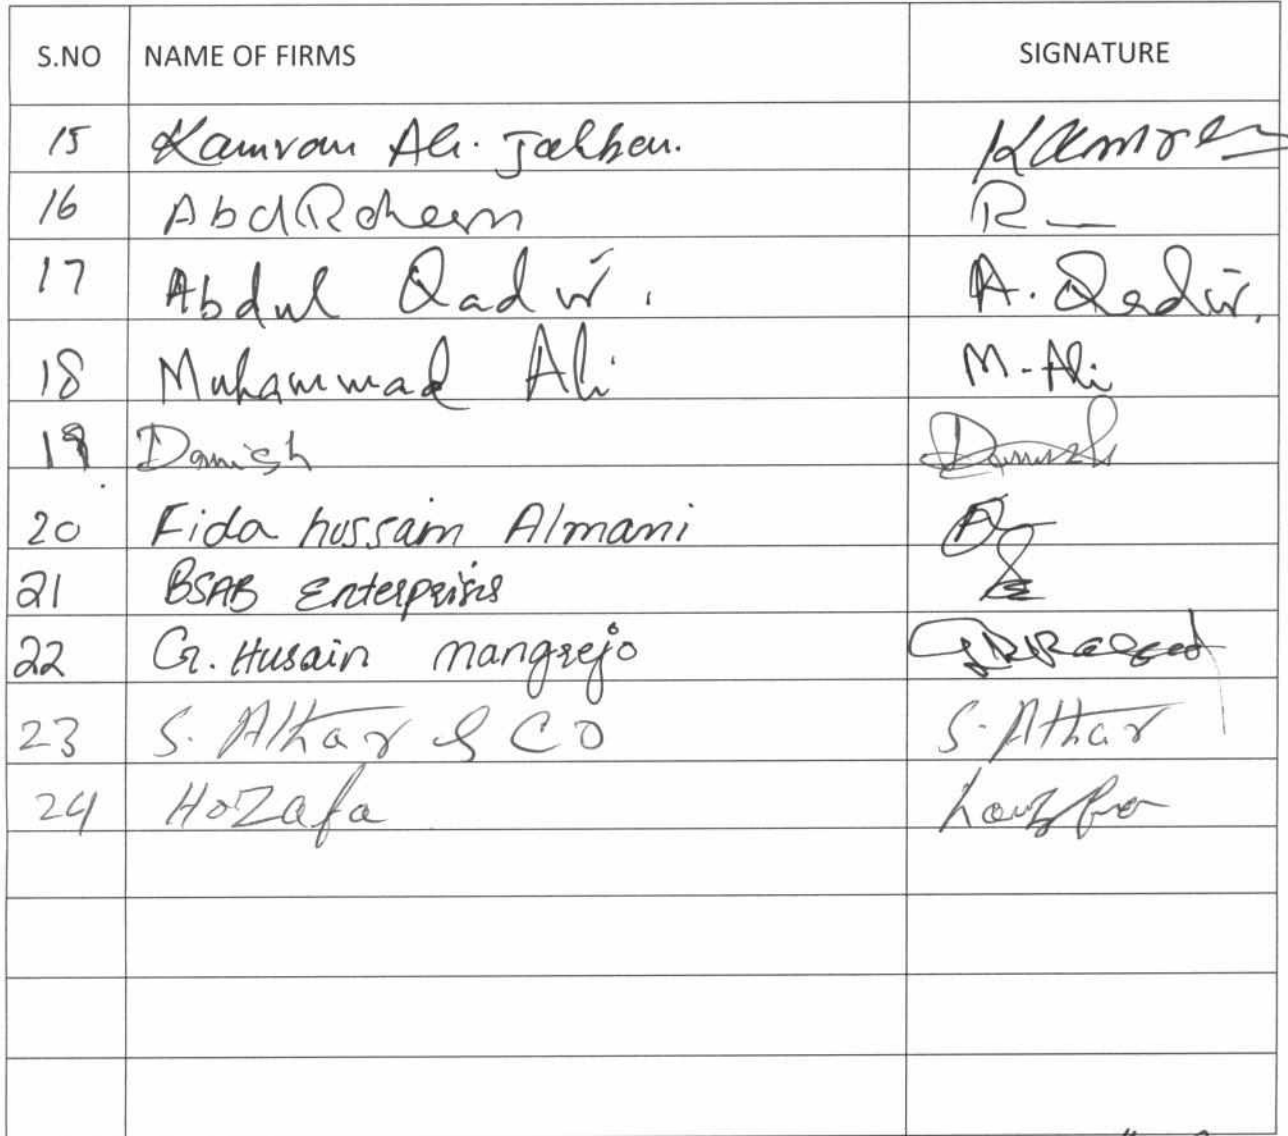 S.NO NAME OF FIRMS SIGNATURE
15 Kamran Ali. Kamran
16 Abd Raheem R
17 Abdul Qadir. A. Qadir.
18 Muhammad Ali M-Ali
19 Danish Danish
20 Fida hussain Almani
21 BSAB Enterprises
22 G. Husain mangrejo
23 S. Athar & CO S. Athar
24 HoZafa